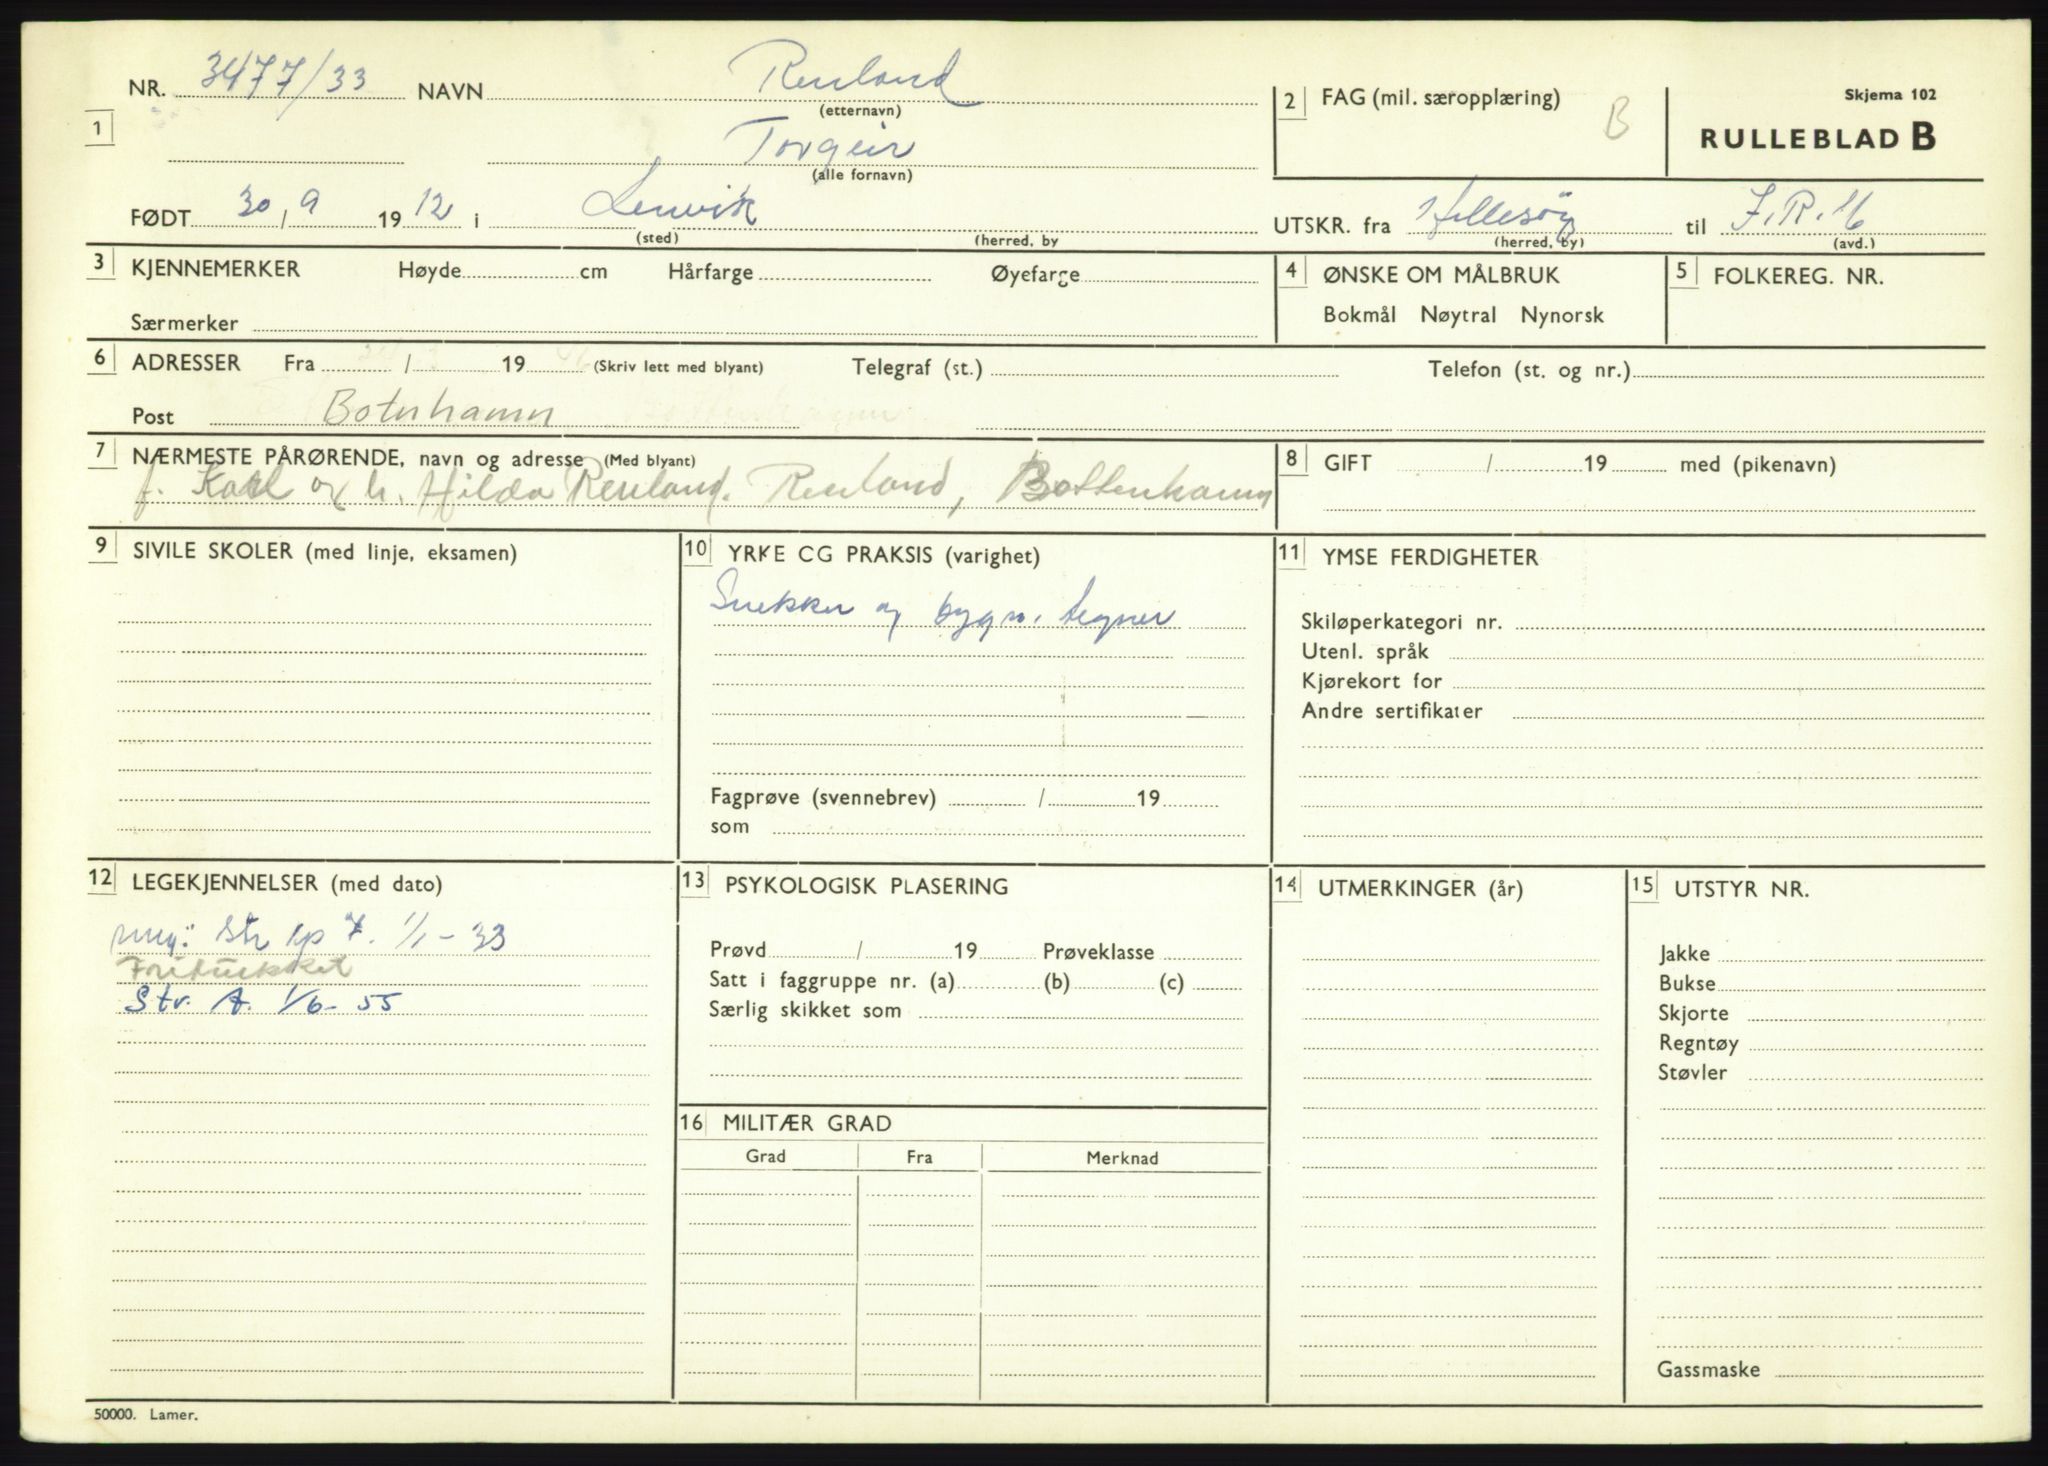 NR. 3477/33 NAVN Renland
(etternavn)
1
Torgeir
(alle fornavn)
2 FAG (mil. særopplæring) B
Skjema 102
RULLEBLAD B
FØDT 30/9 1912 i Lenvik
(sted) (herred, by
UTSKR. fra Hillesøy til I.R.16
(herred, by) (avd.)
3 KJENNEMERKER Høyde cm Hårfarge Øyefarge
Særmerker
4 ØNSKE OM MÅLBRUK
Bokmål Nøytral Nynorsk
5 FOLKEREG. NR.
6 ADRESSER Fra / 19 (Skriv lett med blyant) Telegraf (st.) Telefon (st. og nr.)
Post Botnhamn
7 NÆRMESTE PÅRØRENDE, navn og adresse (Med blyant)
f. Karl og h. Hilda Renland. Renland, Bottenhamn
8 GIFT / 19 med (pikenavn)
9 SIVILE SKOLER (med linje, eksamen)
10 YRKE CG PRAKSIS (varighet)
Snekker og bygn. tegner
Fagprøve (svennebrev) / 19
som
11 YMSE FERDIGHETER
Skiløperkategori nr.
Utenl. språk
Kjørekort for
Andre sertifikater
12 LEGEKJENNELSER (med dato)
Str kp 7. 1/1-33
Str. A. 1/6-55
13 PSYKOLOGISK PLASERING
Prøvd / 19 Prøveklasse
Satt i faggruppe nr. (a) (b) (c)
Særlig skikket som
14 UTMERKINGER (år)
15 UTSTYR NR.
Jakke
Bukse
Skjorte
Regntøy
Støvler
Gassmaske
16 MILITÆR GRAD
Grad Fra Merknad
50000. Lamer.